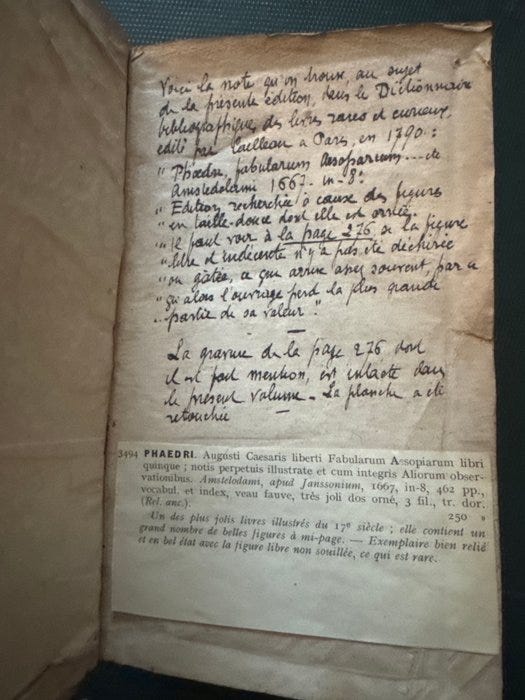 Voici la note qu'on trouve, au sujet
de la présente édition, dans le Dictionnaire
bibliographique des livres rares et curieux,
édité par Cailleau à Paris, en 1790 :
" Phædri, fabularum Æsopiarum .... etc
Amstelodami 1667. in-8°
" Edition recherchée à cause des figures
" en taille-douce dont elle est ornée.
" Il faut voir à la page 276 si la figure
" libre et indécente n'y a pas été déchirée
" ou gâtée, ce qui arrive assez souvent, parce
" qu'alors l'ouvrage perd la plus grande
" partie de sa valeur ".
La gravure de la page 276 dont
il est fait mention, est intacte dans
le présent volume. La planche a été
retouchée
3494 PHAEDRI. Augusti Caesaris liberti Fabularum Aesopiarum libri
quinque ; notis perpetuis illustrate et cum integris Aliorum obser-
vationibus. Amstelodami, apud Janssonium, 1667, in-8, 462 pp.,
vocabul. et index, veau fauve, très joli dos orné, 3 fil., tr. dor.
(Rel. anc.). 250 »
Un des plus jolis livres illustrés du 17e siècle ; elle contient un
grand nombre de belles figures à mi-page. — Exemplaire bien relié
et en bel état avec la figure libre non souillée, ce qui est rare.